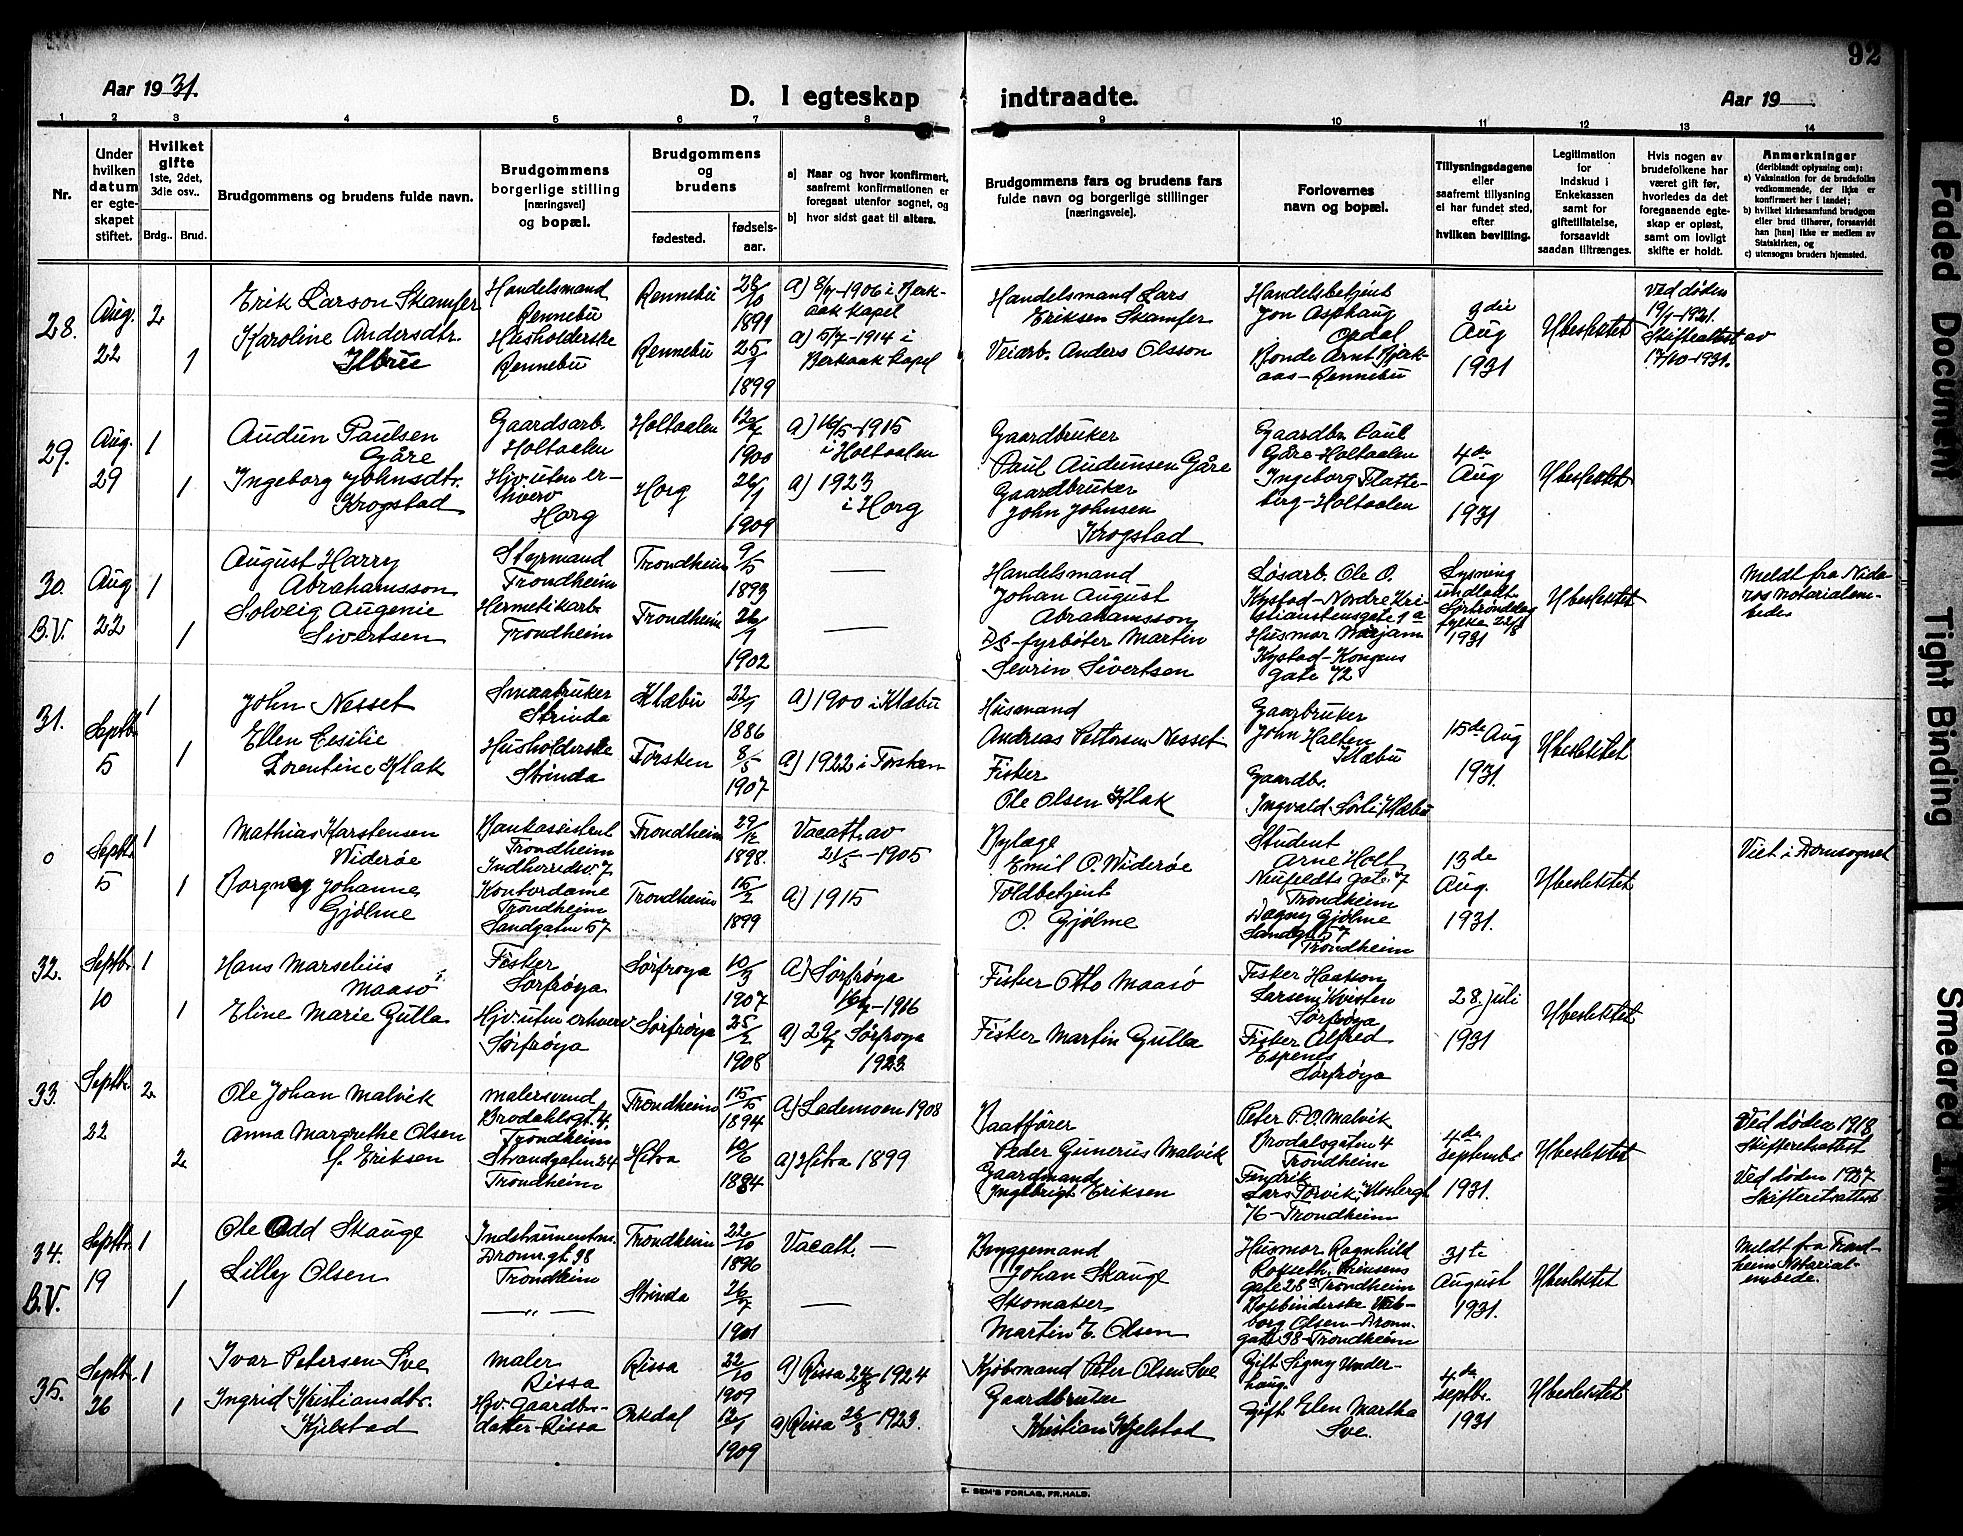 92
Aar 1931.
D. I egteskap indtraadte.
Aar 19
1 2 3 4 5 6 7 8 9 10 11 12 13 14
Nr.
Under hvilken datum er egteskapet stiftet.
Hvilket gifte 1ste, 2det, 3die osv..
Brdg.. Brud.
Brudgommens og brudens fulde navn.
Brudgommens borgerlige stilling [næringsvei] og bopæl.
Brudgommens og brudens
fødested.
fødselsaar.
a) Naar og hvor konfirmert, saafremt konfirmationen er foregaat utenfor sognet, og
b) hvor sidst gaat til alters.
Brudgommens fars og brudens fars fulde navn og borgerlige stillinger [næringsveie].
Forlovernes navn og bopæl.
Tillysningsdagene eller saafremt tillysning ei har fundet sted, efter hvilken bevilling.
Legitimation for indskud i Enkekassen samt for giftetillatelse, forsaavidt saadan tiltrænges.
Hvis nogen av brudefolkene har været gift før, hvorledes da det foregaaende egteskap er opløst, samt om lovligt skifte er holdt.
Anmerkninger (deriblandt oplysning om):
a) Vaksination for de brudefolks vedkommende, der ikke er konfirmert her i landet;
b) hvilket kirkesamfund brudgom eller brud tilhører, forsaavidt han [hun] ikke er medlem av Statskirken, og
c) utensogns bruders hjemsted.
28.
Aug. 22
2
1
Erik Larson Skamfer
Karoline Andersdtr.
Ilbru
Handelsmand
Rennebu
Husholderske
Rennebu
Rennebu
Rennebu
28/10 1891
25/7 1899
a) 8/7-1906 i Berkaak kapel
a) 5/7-1914 i
Berkaak kapel
Handelsmand Lars
Eriksen Skamfer
Veiarb. Anders Olsson
Handelsbetjent
Jon Asphaug
Opdal
Bonde Arnt Bjerkaas-Rennebu
3die
Aug
1931
Ubeslektet
Ved døden
19/1-1921.
Skifteattest av
17/10-1931.
29.
Aug. 29
1
1
Audun Paulsen
Gåre
Ingeborg Johnsdtr.
Krogstad
Gaardsarb.
Holtaalen
Hjv. uten erhverv
Horg
Holtaalen
Horg
1900
26/1 1909
a) 16/5-1915
i Holtaalen
a) 1923
i Horg
Gaardbruker
Paul Audunsen Gåre
Gaardbruker
John Johnsen
Krogstad
Gaardbr. Paul
Gåre-Holtaalen
Ingeborg Flatteberg-Holtaalen
4de
Aug
1931
Ubeslektet
30.
B.V.
Aug 22
1
1
August Harry
Abrahamsson
Solveig Augenie
Sivertsen
Styrmand
Trondheim
Hermetikarb.
Trondheim
Trondheim
Trondheim
9/5 1893
26/9 1902
—
—
Handelsmand
Johan August
Abrahamsson
DS-fyrbøter Martin
Sevrin Sivertsen
Løsarb. Ole O.
Kystad-Nordre Kristianstensgate 1a
Husmor Marjam
Kystad-Kongens
gate 72
Lysning
undladt
Sørtrøndelag
fylke 22/8
1931
Ubeslektet
Meldt fra Nidaros notarialembede.
31.
Septbr. 5
1
1
John Nesset
Ellen Cesilie
Lorentine Klak
Smaabruker
Strinda
Husholderske
Strinda
Klæbu
Torsken
1886
8/5 1907
a) 1900 i Klæbu
a) 1922 i Torsken
Husmand
Andreas Pettersen Nesset
Fisker
Ole Olsen Klak
Gaarbruker
John Halten
Klæbu
Gaardbr.
Ingvald Sørli Klæbu
15de Aug
1931.
Ubeslektet
0
Septbr. 5
1
1
Mathias Karstensen
Widerøe
Borgny Johanne
Gjølme
Bankassistent
Trondheim
Indherredsv. 7
Kontordame
Trondheim
Sandgaten 57
Trondheim
Trondheim
29/12 1898.
15/2 1899
Vacatt. av
21/5-1905
a) 1915
Bylæge
Emil O. Widerøe
Toldbetjent
O. Gjølme
Student
Arne Holt
Neufeldts gate 7
Trondheim
Dagny Gjølme
Sandgt. 57
Trondheim
13de
Aug.
1931.
Ubeslektet
Viet i Domsognet
32.
Septbr. 10
1
1
Hans Marselius
Maasø
Eline Marie Gutla
Fisker
Sørfrøya
Hjv. uten erhverv
Sørfrøya
Sørfrøya
Sørfrøya
10/3 1907
25/2 1908
a) Sørfrøya
16/7-1916
a) 29/7 Sørfrøya
1923
Fisker Otto Maasø
Fisker Martin Gutla
Fisker Haakon
Larsen Kvisten
Sørfrøya
Fisker Alfred
Espenes
Sørfrøya
28. juli
1931
Ubeslektet
33.
Septbr. 22
2
2
Ole Johan Malvik
Anna Margrethe Olsen
f. Eriksen
Malersvend
Brodahlsgt. 4.
Trondheim
Strandgaten 24
Trondheim
Trondheim
Hitra
15/5 1894
10/6 1884
a) Lademoen 1908
a) Hitra 1899
Baatfører
Peder Gunerius Malvik
Gaardmand
Ingebrigt Eriksen
Peter P.O. Malvik
Brodalsgaten 4
Trondheim
Fendrik
Lars Torvik, Klosterg.
76-Trondheim
4de
septembr
1931.
Ubeslektet
Ved døden 1918
Skifteretsattest
Ved døden 1927
Skifteretsattest
34.
B.V.
Septbr. 19
1
1
Ole Odd Skauge
Lilly Olsen
Instrumentm.
Dronn.gt. 38
Trondheim
— „ —
Trondheim
Strinda
22/10 1896
26/7 1901
Vacatt. —
—
Bryggemand
Johan Skauge
Skomaker
Martin E. Olsen
Husmor Ragnhild
Rokseth, Prinsens
gate 28a Trondheim
Bokbinderske Valborg Olsen-Dronn.
gate 38-Trondheim
31te
August
1931.
Ubeslektet
Meldt fra Trondheim Notarialembede.
35.
Septbr. 26
1
1
Ivar Petersen Sve
Ingrid Kristiansdtr.
Kjelstad
Maler
Rissa
Hjv. Gaardbr.
datter-Rissa
Rissa
Orkdal
22/10 1909
12/1 1909
a) Rissa 24/8 1924
a) Rissa 26/8 1923.
Kjøbmand Peter Olsen Sve
Gaardbruker
Kristian Kjelstad
Gift Signy Underhaug.
Gift Elen Martha
Sve.
4de
septbr.
1931
Ubeslektet
E. SEM'S FORLAG, FR.HALD.
Faded Document
Tight Binding
Smeared Ink